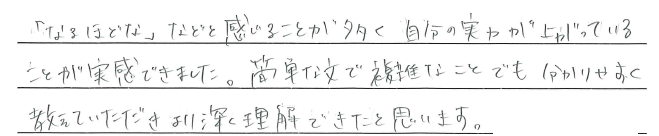 「なるほどな」などと感じることが多く自分の実力が上がっている
ことが実感できました。簡単な文で複雑なことでも分かりやすく
教えていただきより深く理解できたと思います。